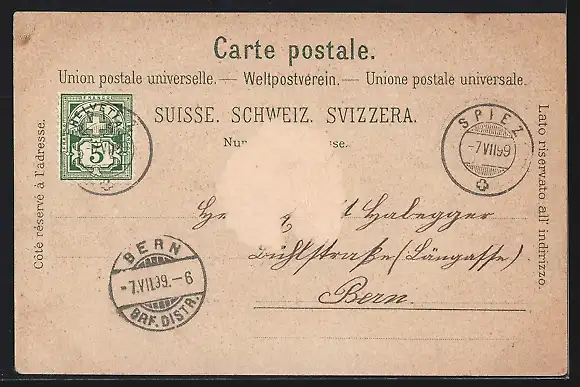 Carte postale.
Union postale universelle. — Weltpostverein. — Unione postale universale.
SUISSE. SCHWEIZ. SVIZZERA.
Nur sse.
HELVETIA
5
SPIEZ
-7.VII.99
Côté réservé à l'adresse.
Lato riservato all' indirizzo.
Habegger
Bühlstraße (Längasse)
Bern.
BERN
-7.VII.99.-6
BRF. DISTR.